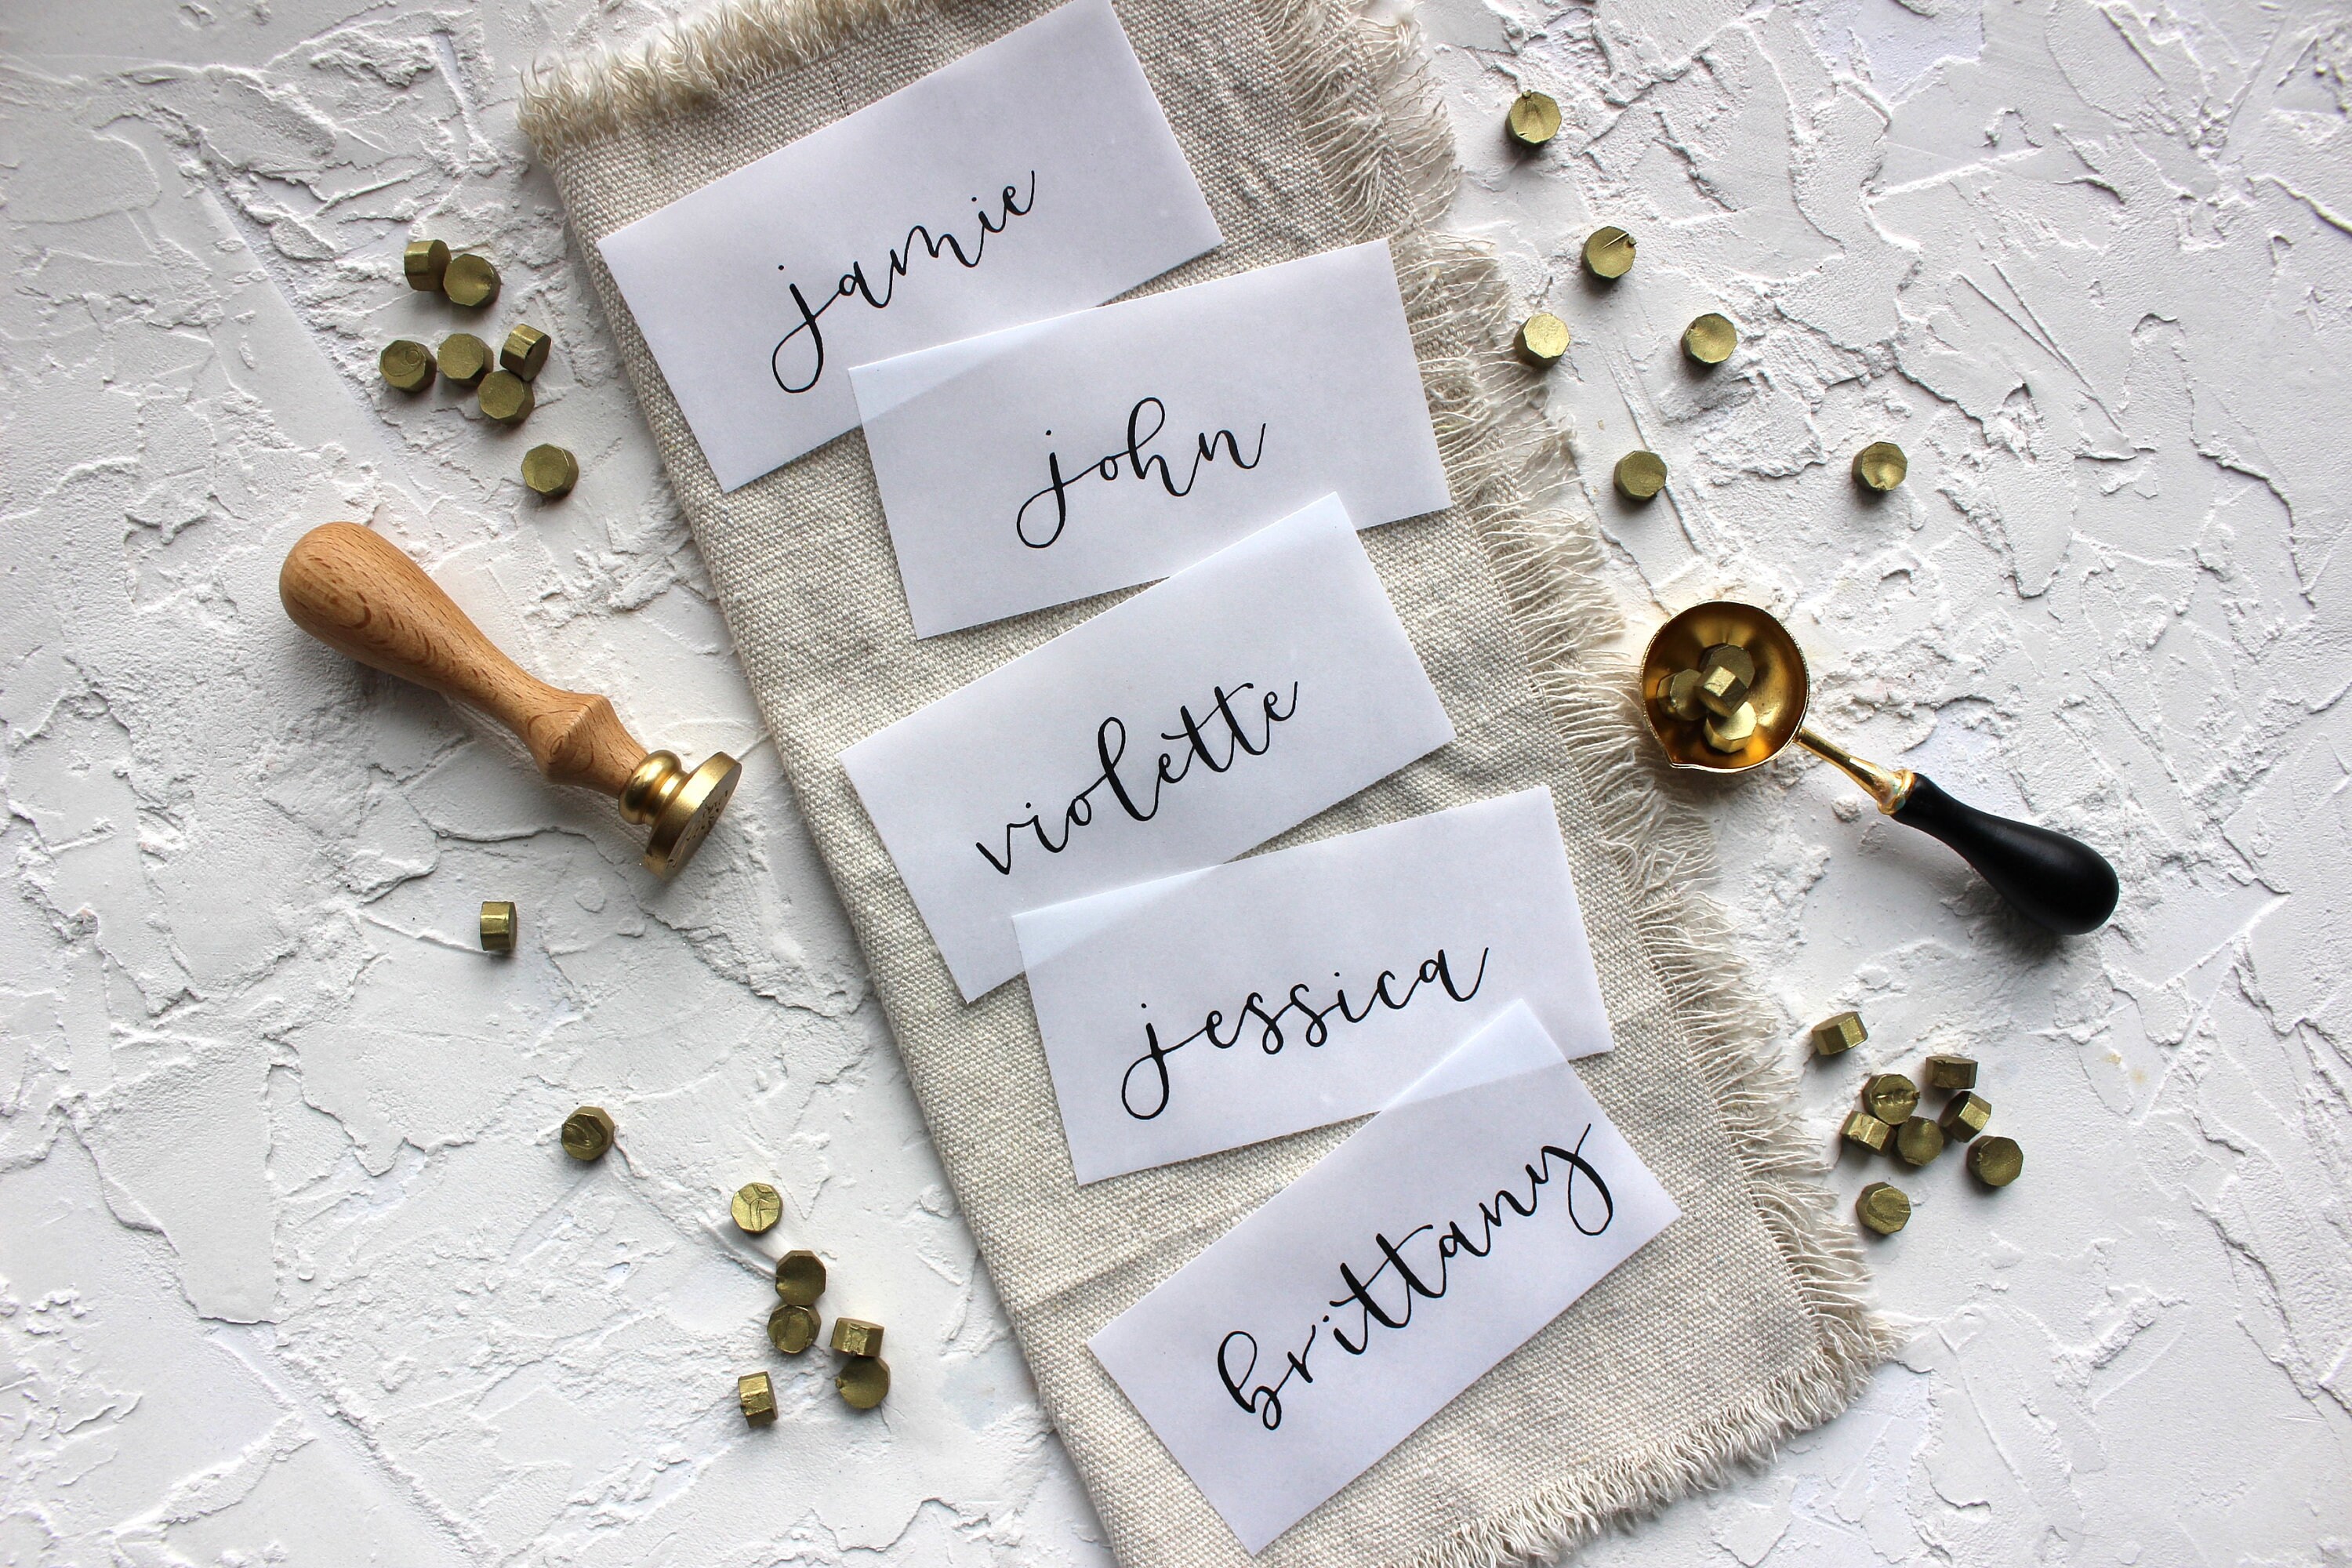 jamie
john
violette
jessica
brittany